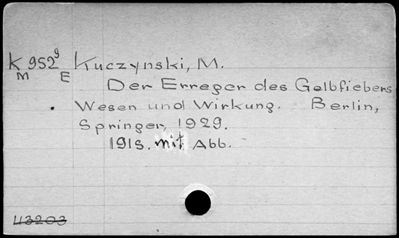 K 952⁹ Kuczynski, M.
M E
Der Erreger des Gelbfiebers
Wesen und Wirkung. Berlin,
Springer, 1929.
191S. mit Abb.
43203